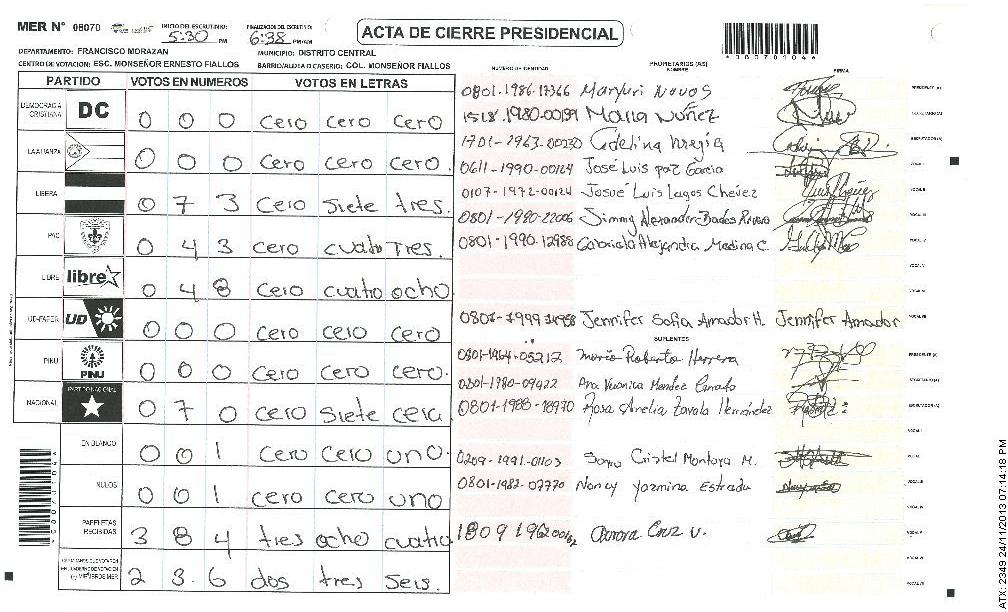 MER N° 08070 INICIO DEL ESCRUTINIO: 5:30 PM FINALIZACION DEL ESCRUTINIO: 6:38 PM/AM
ACTA DE CIERRE PRESIDENCIAL
*08070104*
DEPARTAMENTO: FRANCISCO MORAZAN MUNICIPIO: DISTRITO CENTRAL
CENTRO DE VOTACION: ESC. MONSEÑOR ERNESTO FIALLOS BARRIO/ALDEA O CASERIO: COL. MONSEÑOR FIALLOS
PARTIDO VOTOS EN NUMEROS VOTOS EN LETRAS
DEMOCRACIA CRISTIANA DC 0 0 0 cero cero cero
LA ALIANZA 0 0 0 cero cero cero.
LIBERA 0 7 3 cero siete tres.
PAC 0 4 3 cero cuatro Tres.
LIBRE libre 0 4 8 cero cuatro ocho
UD-FAPER UD 0 0 0 cero cero cero
PINU PINU 0 0 0 cero cero cero.
NACIONAL PARTIDO NACIONAL 0 7 0 cero siete cero
EN BLANCO 0 0 1 cero cero uno.
NULOS 0 0 1 cero cero uno
PAPELETAS RECIBIDAS 3 8 4 tres ocho cuatro
2 3 6 dos tres seis.
NUMERO DE IDENTIDAD PROPIETARIOS (AS) NOMBRE FIRMA
0801-1986-17366 Marjuri Navas PRESIDENTE (A)
1518-1980-00139 Maria Nuñez SECRETARIO (A)
1701-1963-00230 Edelina mejia ESCRUTADOR (A)
0611-1990-00164 José Luis paz Garcia VOCAL I
0107-1972-00124 Josué Luis Lagos Chévez VOCAL II
0801-1980-22006 Jimmy Alexander VOCAL III
0801-1990-12988 Gabriela Alejandra Medina C. VOCAL IV
VOCAL V
VOCAL VI
Jennifer Sofia Amador H. Jennifer Amador VOCAL VII
SUPLENTES
0801-1964-05212 Mario Roberto Herrera PRESIDENTE (A)
0801-1980-09422 Ana Veronica Mendez SECRETARIO (A)
0801-1988-18970 Rosa Amelia Zavala Hernández ESCRUTADOR (A)
VOCAL I
0209-1991-01103 Cristel Montoya M. VOCAL II
0801-1982-07770 Nancy Yazmina Estrada VOCAL III
VOCAL IV
1809 1962 Aurora Cruz V. VOCAL V
VOCAL VI
VOCAL VII
ATX: 2349 24/11/2013 07:14:18 PM